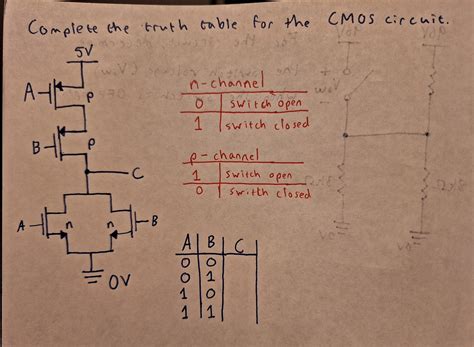 Complete the truth table for the CMOS circuit.
5V
A
p
B
p
C
A
n
n
B
0V
n-channel
0 switch open
1 switch closed
p-channel
1 switch open
0 switch closed
A B C
0 0
0 1
1 0
1 1